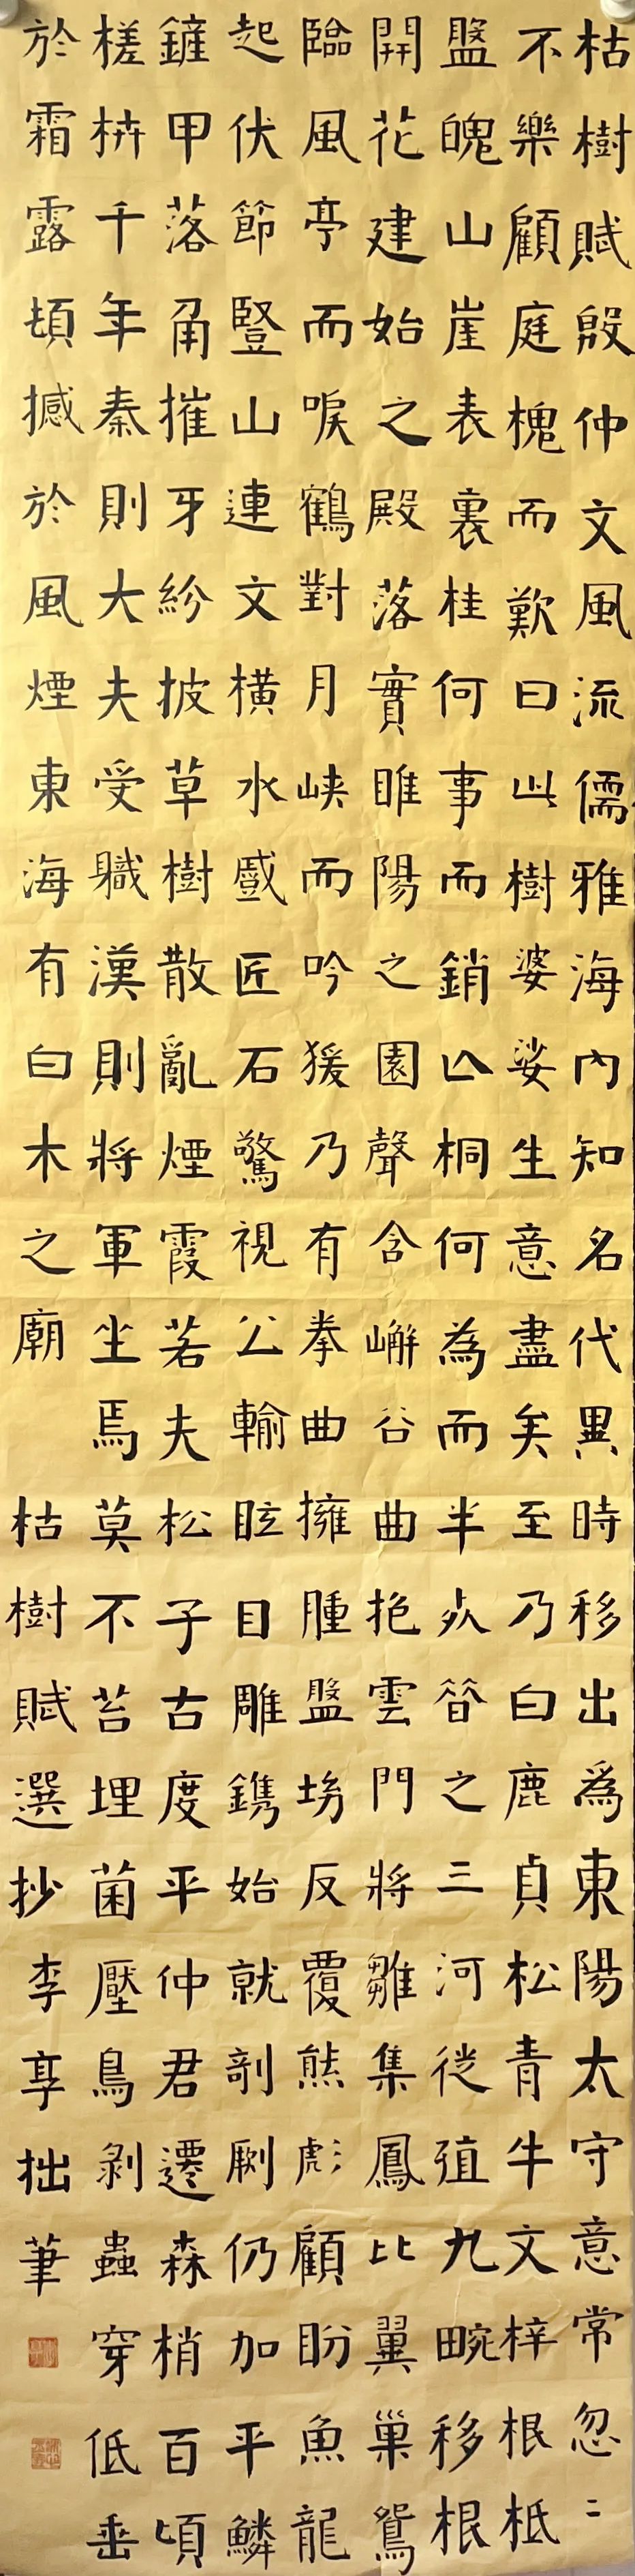 枯樹賦殷仲文風流儒雅海內知名代異時移出爲東陽太守意常忽二
不樂顧庭槐而歎曰此樹婆娑生意盡矣至乃白鹿貞松青牛文梓根柢
盤魄山崖表裏桂何事而銷亾桐何為而半死昝之三河徙殖九畹移根
開花建始之殿落實睢陽之園聲含嶰谷曲抱雲門將雛集鳳比翼巢鴛
臨風亭而唳鶴對月峽而吟猨乃有拳曲擁腫盤坳反覆熊彪顧盼魚龍
起伏節豎山連文橫水蹙匠石驚視公輸眩目雕鐫始就剞劂仍加平鱗
鏟甲落角摧牙紛披草樹散亂煙霞若夫松子古度平仲君遷森梢百頃
槎枿千年秦則大夫受職漢則將軍坐焉莫不苔埋菌壓鳥剝蟲穿低垂
於霜露頓撼於風煙東海有白木之廟 枯樹賦選抄李享拙筆